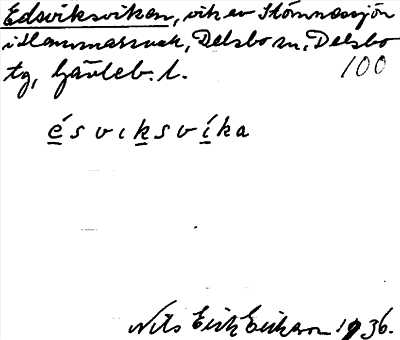 Edsviksviken, vik av Stömnessjön
i Hammarsvak, Delsbo sn, Delsbo
tg, Gävleb. l. 100
ésvıksvíka
Nils Erik Erikson 1936.